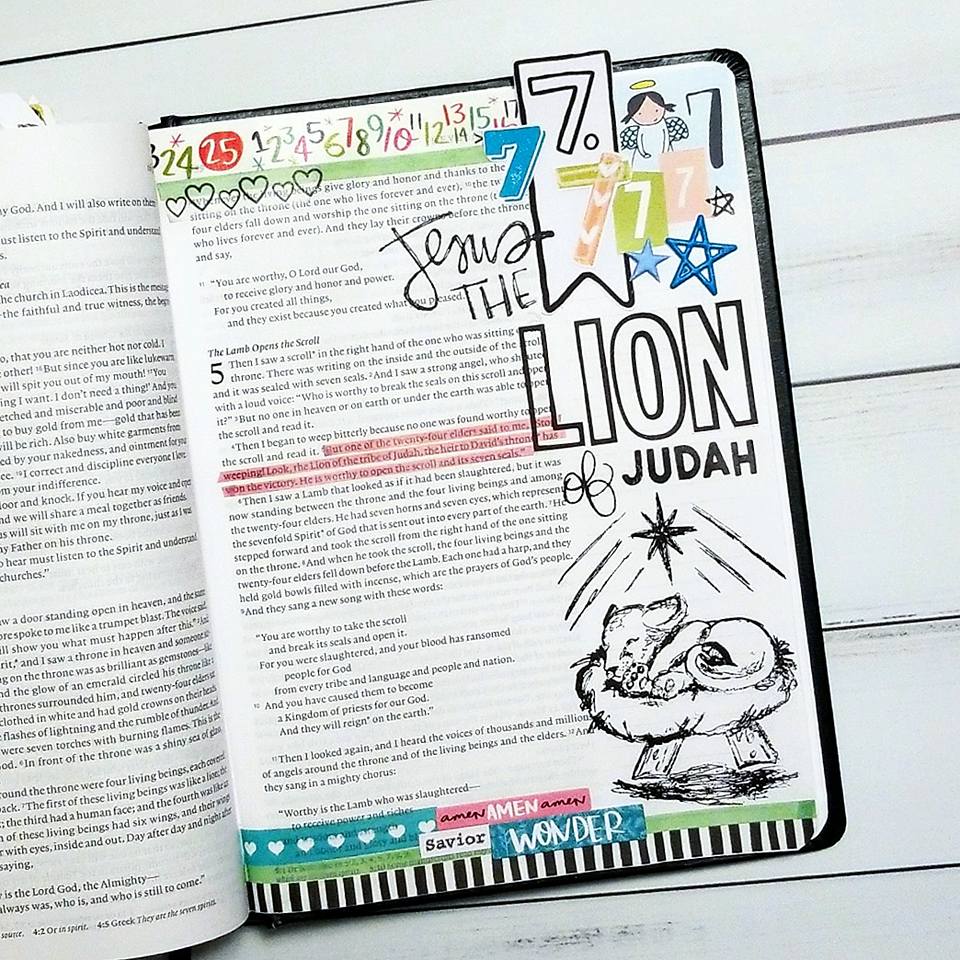 ny God. And I will also write on them
ust listen to the Spirit and understand
the church in Laodicea. This is the message
the faithful and true witness, the
o, that you are neither hot nor cold. I
other! 16 But since you are like lukewarm
will spit you out of my mouth! 17 You
ing I want. I don't need a thing!' And you
etched and miserable and poor and blind
to buy gold from me—gold that has been
will be rich. Also buy white garments from
ed by your nakedness, and ointment for
ee. 19 I correct and discipline everyone I love.
om your indifference.
door and knock. If you hear my voice and
nd we will share a meal together as friends.
will sit with me on my throne, just as I was
y Father on his throne.
o hear must listen to the Spirit and understand
churches."
w a door standing open in heaven, and the same
ore spoke to me like a trumpet blast. The voice said,
ll show you what must happen after this." 2 And
irit, and I saw a throne in heaven and someone
ng on the throne was as brilliant as gemstones—
nd the glow of an emerald circled his throne like
thrones surrounded him, and twenty-four elders
clothed in white and had gold crowns on their heads.
flashes of lightning and the rumble of thunder. And
were seven torches with burning flames. This is the
od. 6 In front of the throne was a shiny sea of glass,
round the throne were four living beings, each covered
ack. 7 The first of these living beings was like a lion; the
; the third had a human face; and the fourth was like
n of these living beings had six wings, and their wings
with eyes, inside and out. Day after day and night after
saying,
y is the Lord God, the Almighty—
always was, who is, and who is still to come."
source. 4:2 Or in spirit. 4:5 Greek They are the seven spirits.
3 24 25 1 2 3 4 5 6 7 8 9 10 11 12 13 14 15 17
7.
7
7
7
7
7
living beings give glory and honor and thanks to the
sitting on the throne (the one who lives forever and ever), 10 the
four elders fall down and worship the one sitting on the throne
who lives forever and ever). And they lay their crowns before the throne
and say,
11 "You are worthy, O Lord our God,
to receive glory and honor and power.
For you created all things,
and they exist because you created what you pleased."
Jesus
THE
LION
of JUDAH
The Lamb Opens the Scroll
5 Then I saw a scroll in the right hand of the one who was sitting
throne. There was writing on the inside and the outside of the scroll
and it was sealed with seven seals. 2 And I saw a strong angel, who shouted
with a loud voice: "Who is worthy to break the seals on this scroll and open
it?" 3 But no one in heaven or on earth or under the earth was able to open
the scroll and read it.
4 Then I began to weep bitterly because no one was found worthy to open
the scroll and read it. 5 But one of the twenty-four elders said to me, "Stop
weeping! Look, the Lion of the tribe of Judah, the heir to David's throne, has
won the victory. He is worthy to open the scroll and its seven seals."
6 Then I saw a Lamb that looked as if it had been slaughtered, but it was
now standing between the throne and the four living beings and among
the twenty-four elders. He had seven horns and seven eyes, which represent
the sevenfold Spirit of God that is sent out into every part of the earth. 7 He
stepped forward and took the scroll from the right hand of the one sitting
on the throne. 8 And when he took the scroll, the four living beings and the
twenty-four elders fell down before the Lamb. Each one had a harp, and they
held gold bowls filled with incense, which are the prayers of God's people.
9 And they sang a new song with these words:
"You are worthy to take the scroll
and break its seals and open it.
For you were slaughtered, and your blood has ransomed
people for God
from every tribe and language and people and nation.
10 And you have caused them to become
a Kingdom of priests for our God.
And they will reign on the earth."
11 Then I looked again, and I heard the voices of thousands and millions
of angels around the throne and of the living beings and the elders. 12 And
they sang in a mighty chorus:
"Worthy is the Lamb who was slaughtered—
to receive power and riches
amen AMEN amen
Savior WONDER